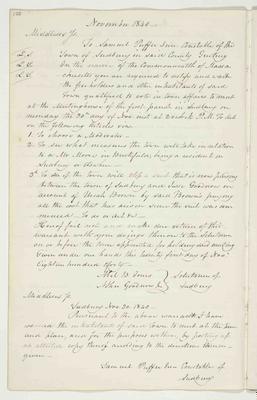 November 1840
Middlesex Ss.
To Samuel Puffer Jun. Constable of the
L.S. Town of Sudbury in said County Greeting
L.S. In the name of the Commonwealth of Massa
L.S. chusetts you are required to notify and warn
the freeholders and other inhabitants of said
Town qualified to vote in town affairs to meet
at the Meetinghouse of the first parish in Sudbury on
monday the 30th day of Nov. inst at 2 oclock P.M. To act
on the following articles viz.
1. To choose a Moderator.
2. To see what measures the Town will take in relation
to a Mr Moore in Northfield, being a resident in
Sudbury or
3. To see if the Town will stop a suit that is now pending
between the town of Sudbury and Luke Goodnow on
account of Uriah Brown by said Brown's paying
all the cost that has arisen since the suit was com
menced. To
Hereof fail not and make due return of this
warrant with your doings thereon to the Selectmen
on or before the time appointed for holding said meeting
Given under our hands this twenty first day of Nov.
Eighteen hundred & forty
Abel B. Jones Selectmen of
John Goodnow Jr. Sudbury
Middlesex Ss.
Sudbury Nov 30. 1840.
Pursuant to the above warrant I have
warned the inhabitants of said Town to meet at the time
and place, and for the purposes within, by posting up
an attested copy hereof according to the direction therein
given
Samuel Puffer Jun Constable of
Sudbury